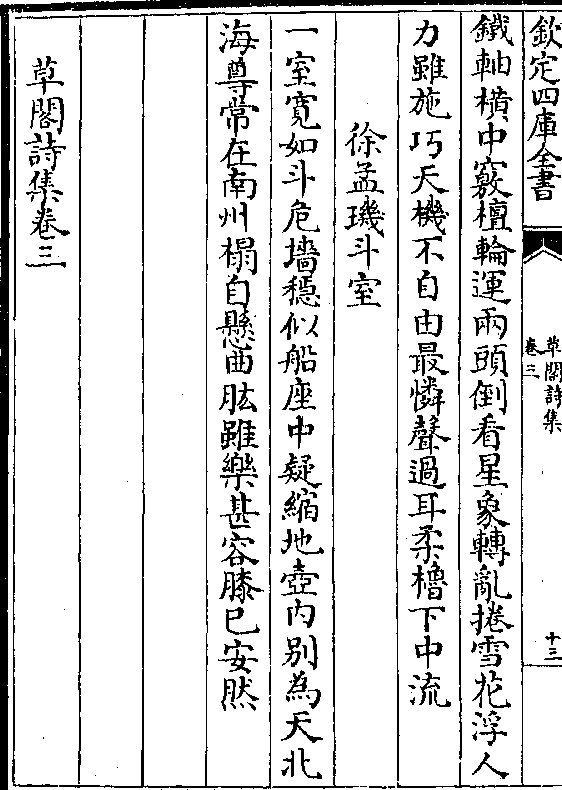 欽定四庫全書
草閣詩集
卷三
十三
鐵軸横中竅檀輪運兩頭倒看星象轉亂捲雪花浮人
力雖施巧天機不自由最憐聲過耳柔櫓下中流
徐孟璣斗室
一室寛如斗危墻穩似船座中疑縮地壺内别為天北
海尊常在南州榻自懸曲肱雖樂甚容膝已安然
草閣詩集卷三